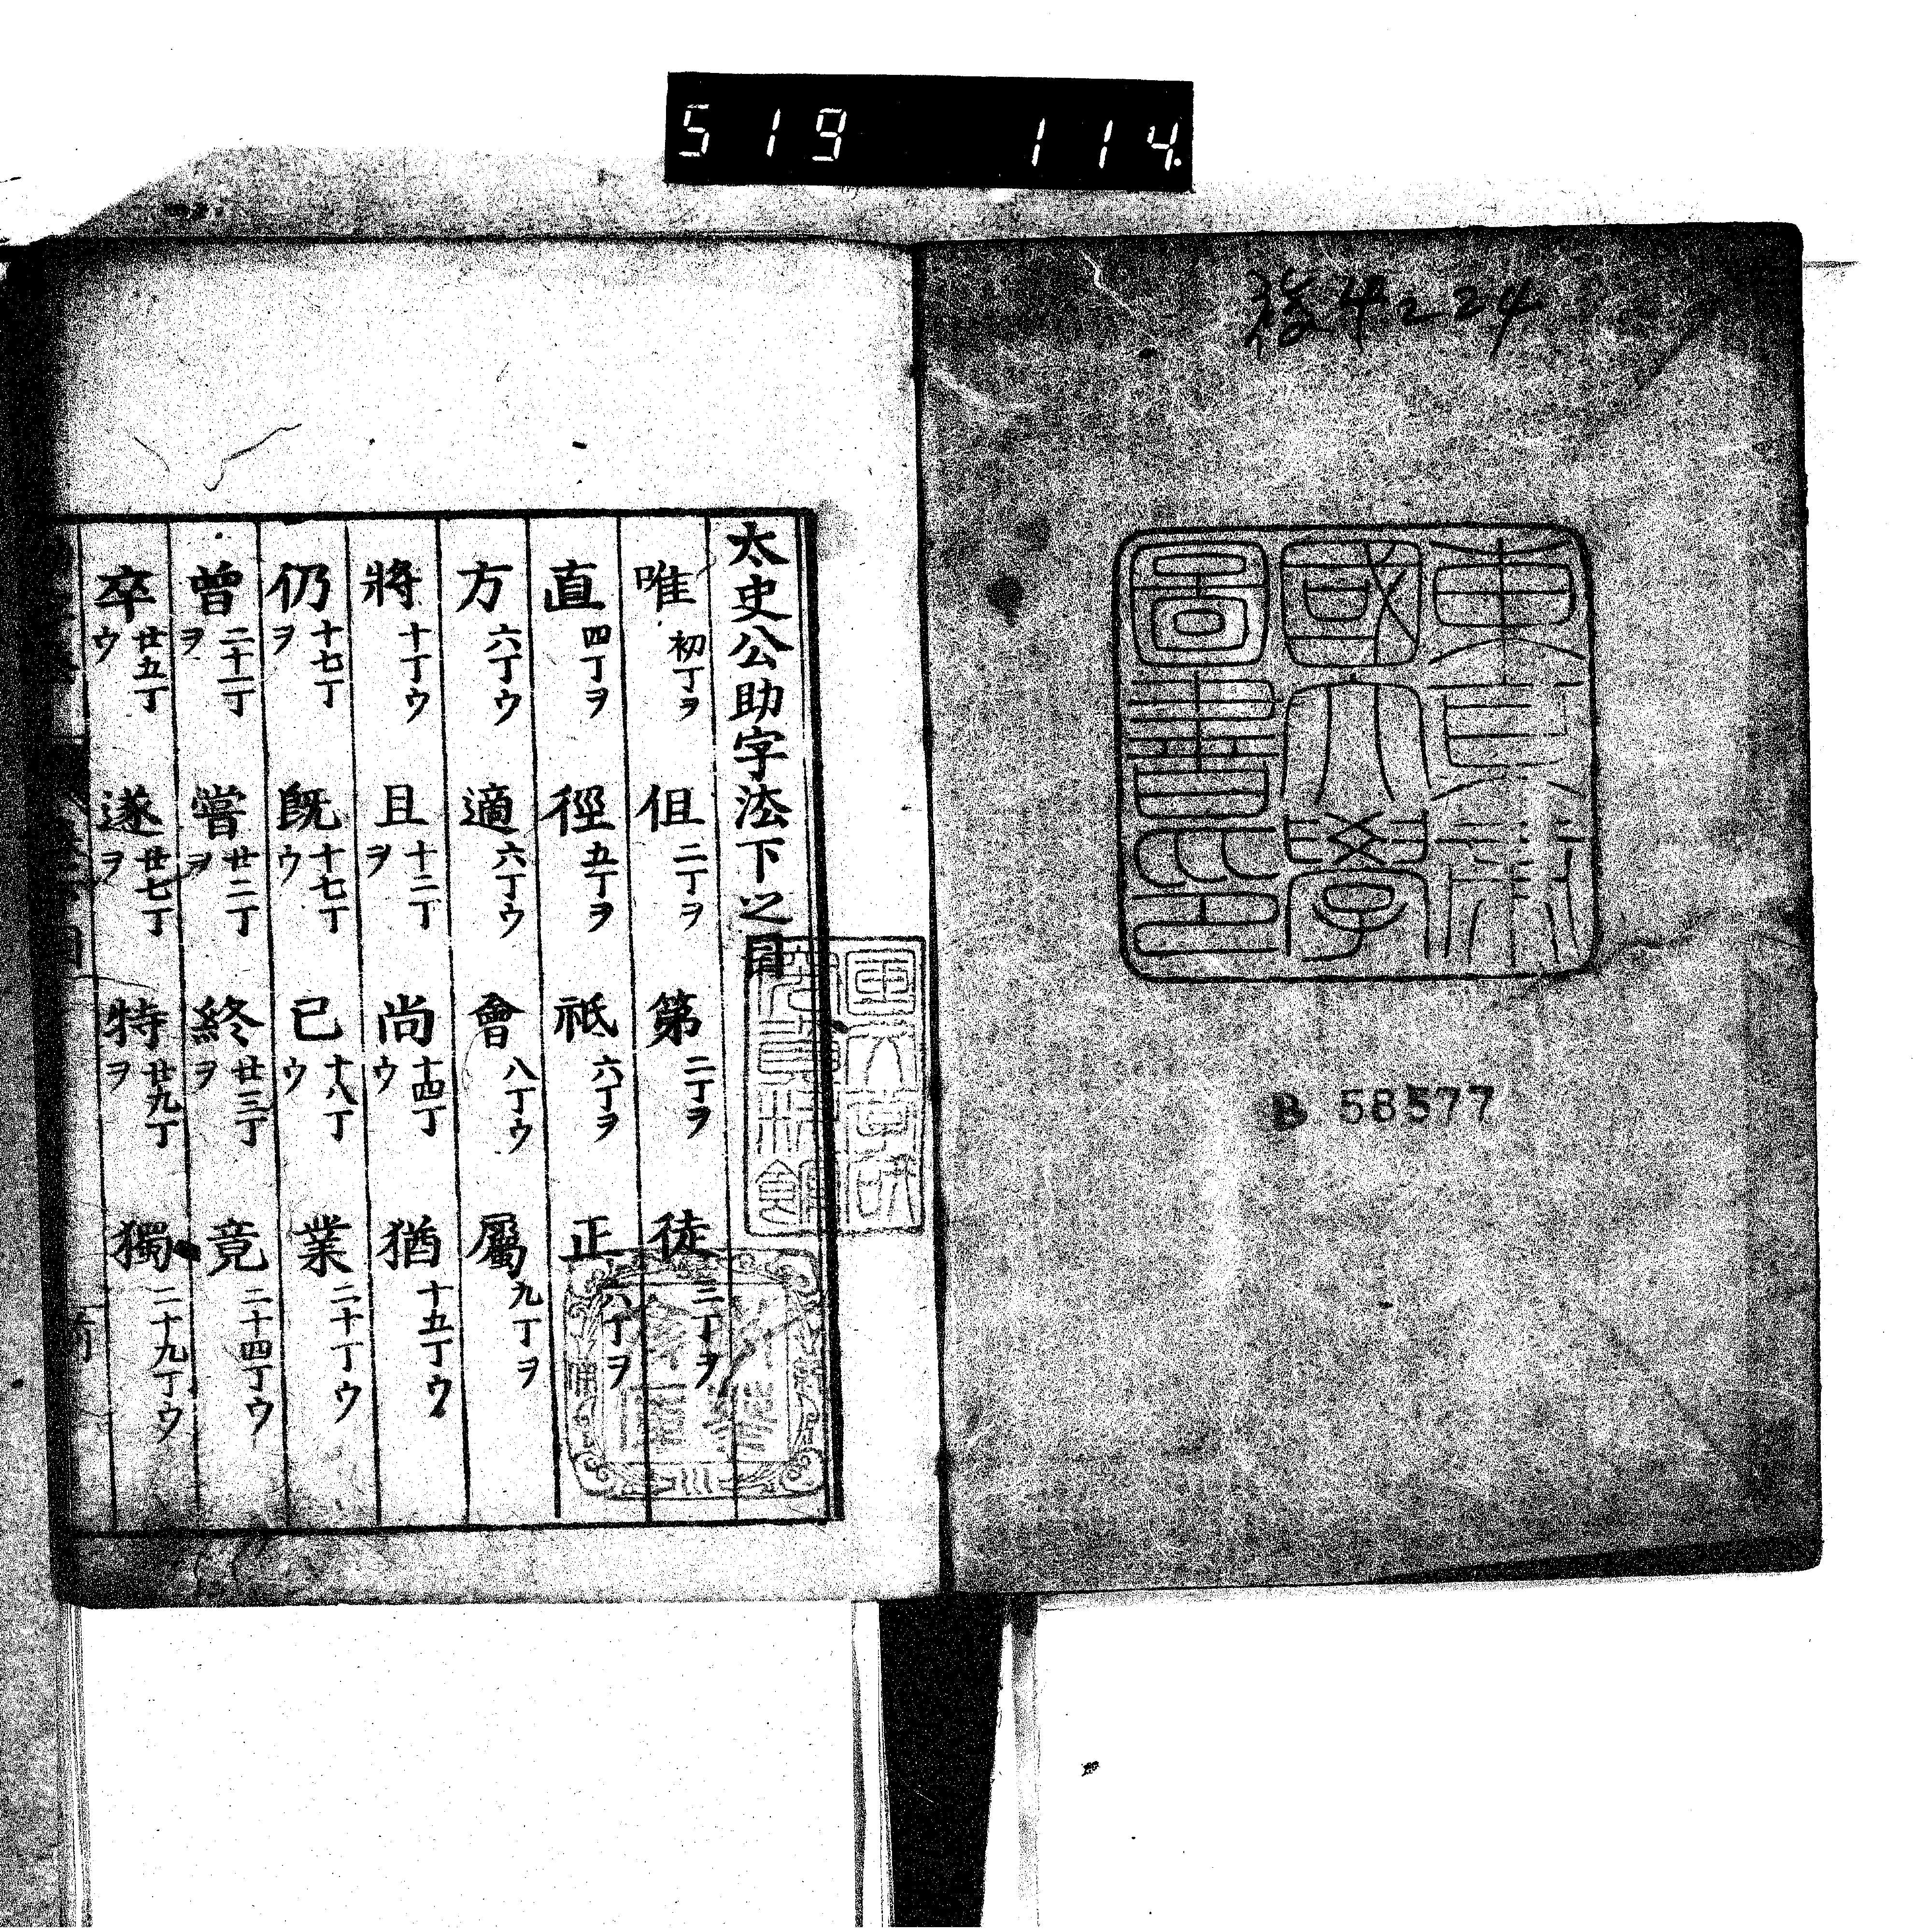 519 114.
複4224
東京帝
國大學
圖書之印
B 58577
太史公助字法下之目
唯 初丁ヲ 但 二丁ヲ 第 二丁ヲ 徒 三丁ヲ
直 四丁ヲ 徑 五丁ヲ 祗 六丁ヲ 正 六丁ヲ
方 六丁ウ 適 六丁ウ 會 八丁ウ 屬 九丁ヲ
將 十丁ウ 且 十二丁ヲ 尚 十四丁ウ 猶 十五丁ウ
仍 十七丁ヲ 既 十七丁ウ 已 十八丁ウ 業 二十丁ウ
曾 二十一丁ヲ 嘗 廿二丁ヲ 終 廿三丁ヲ 竟 二十四丁ウ
卒 廿五丁ウ 遂 廿七丁ヲ 特 廿九丁ヲ 獨 二十九丁ウ